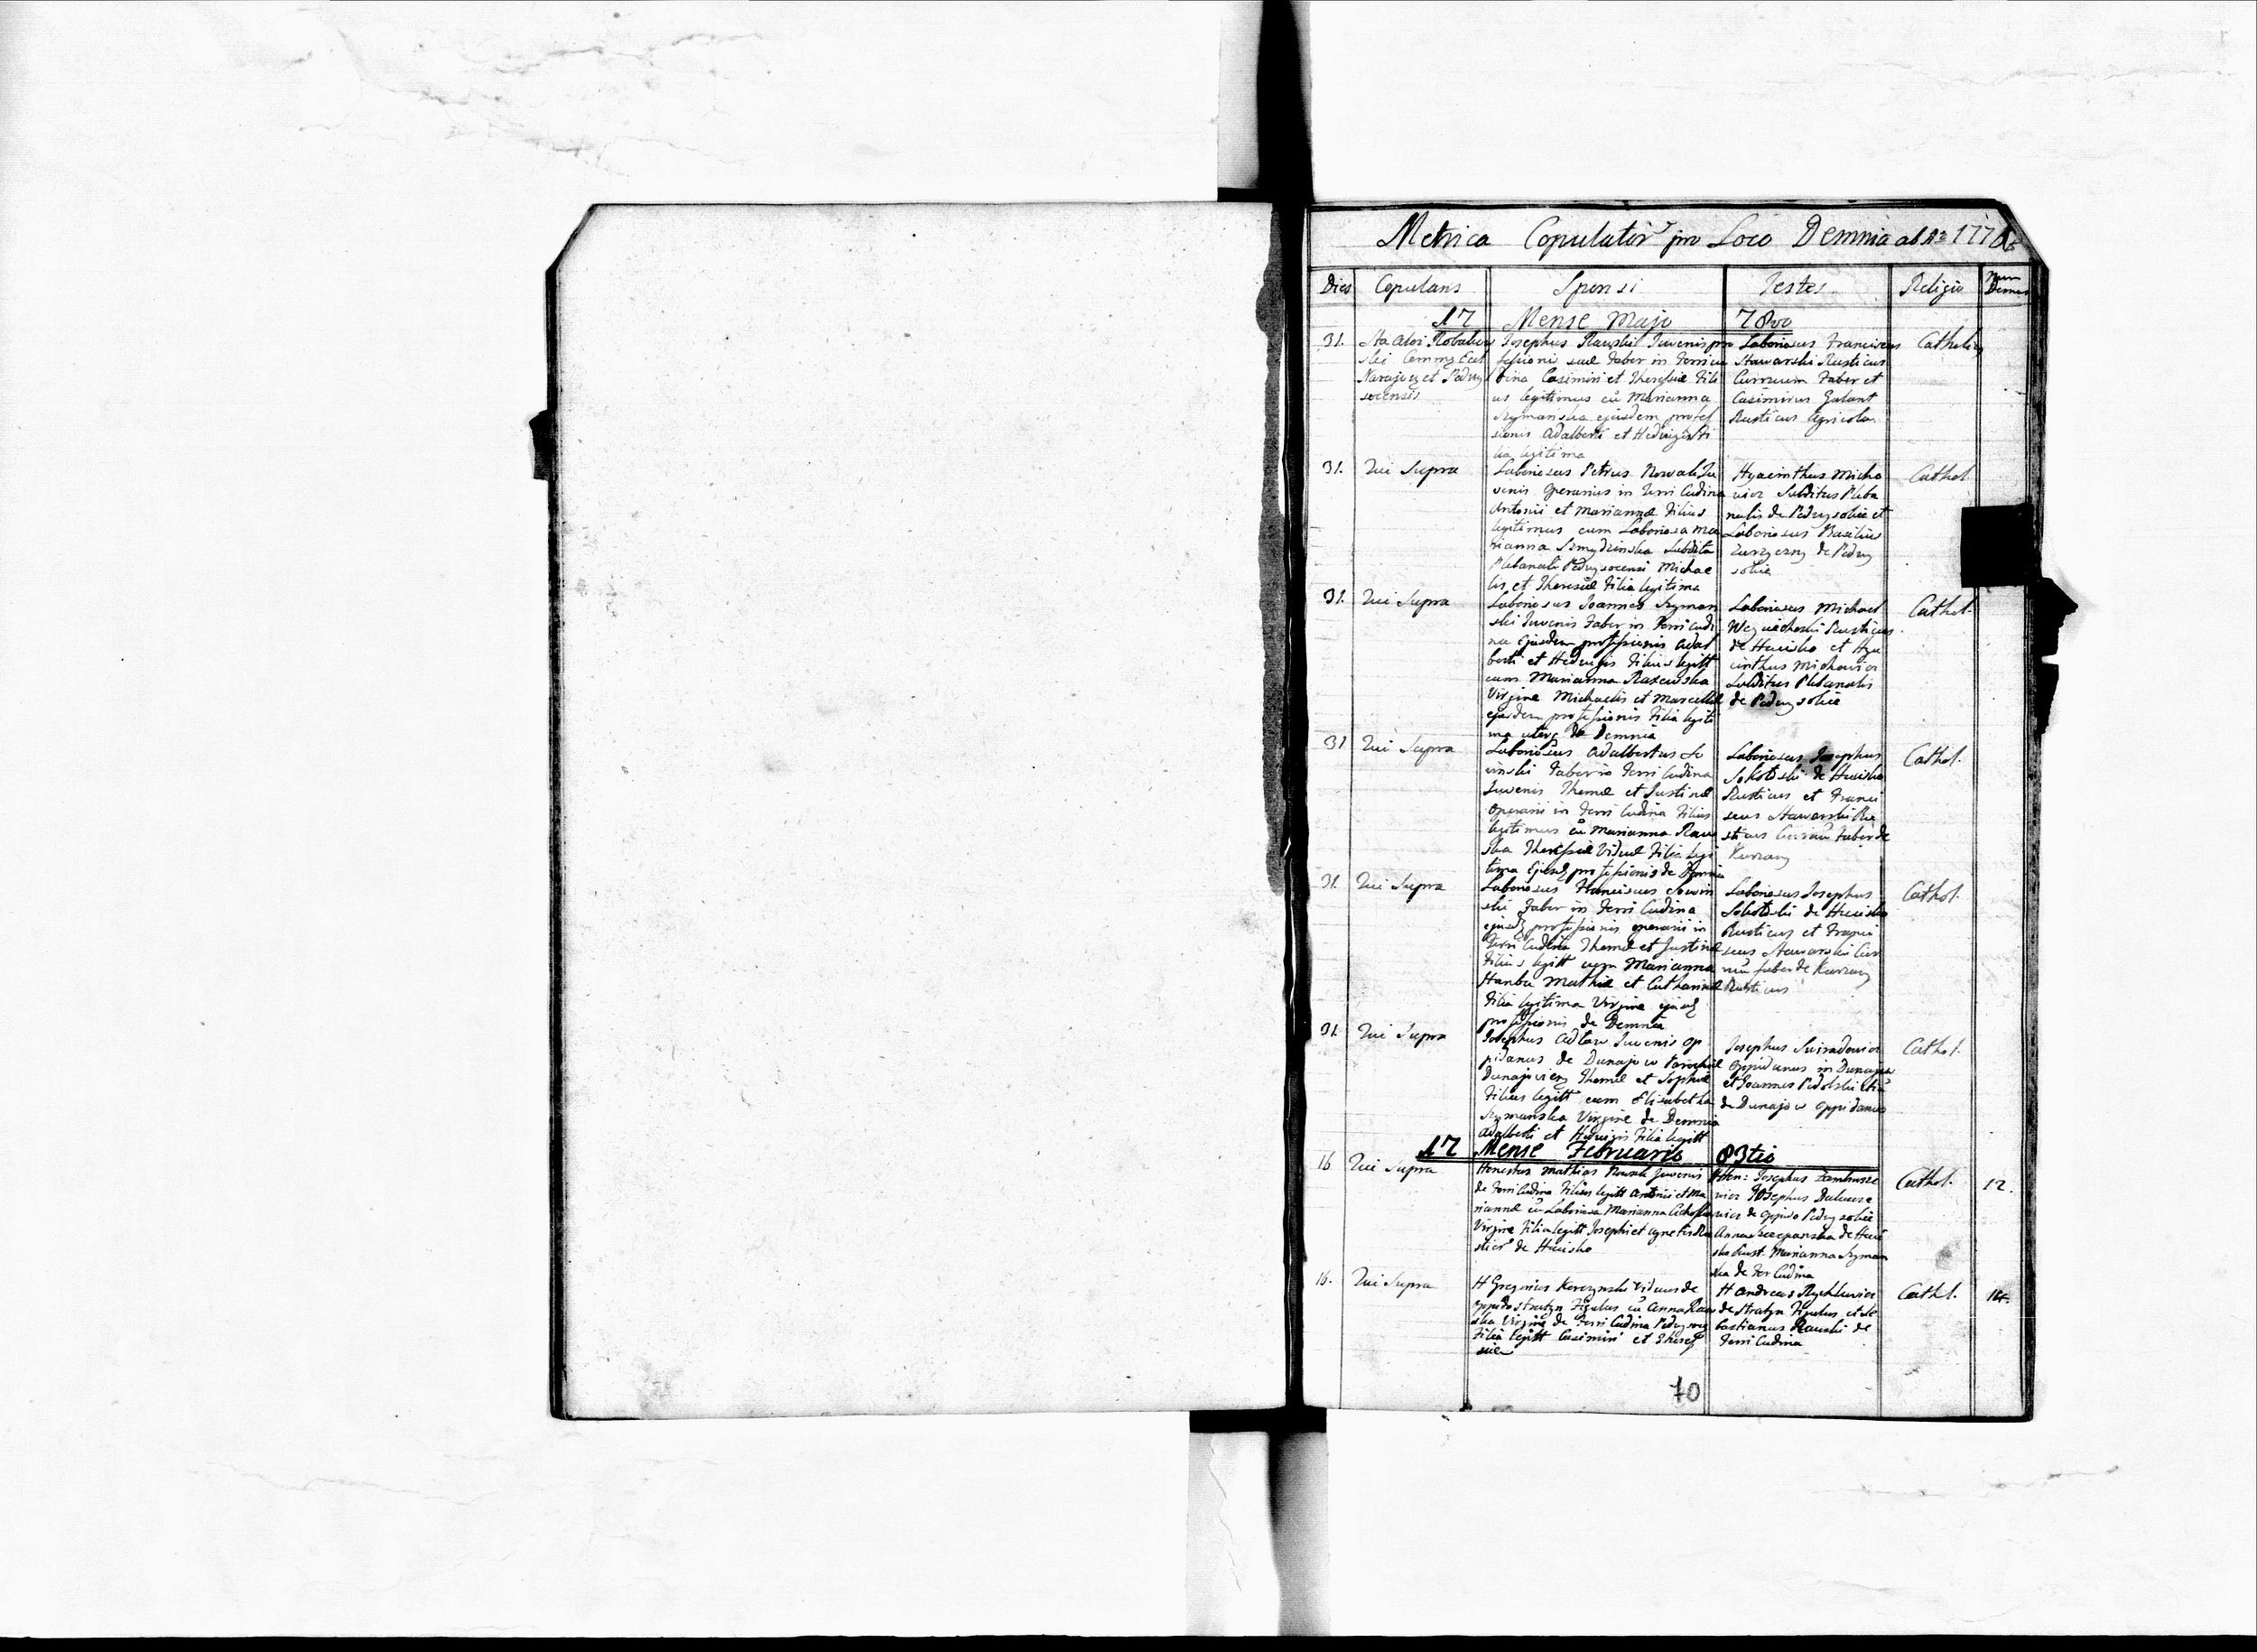 Metrica Copulator pro Loco Demnia ab Ao 177
Dies Copulans Sponsi Testes Religio Num Domus
17 Mense Majo 78vo
31. Josephus Rauski Juvenis pro
fessionis suae Faber in Ferricu
dina Casimiri et Theressiae Fili
us legitimus cu Marianna
Szymanska ejusdem profes
sionis Adalberti et Hedwigis Fi
lia legitima
Laboriosus Franciscus
Stawarski Rusticus
Curruum Faber et
Casimirus Galant
Rusticus Agricola
Catholic
31. Qui Supra
Laboriosus Petrus Nowak Ju
venis Operarius in Ferri Cudina
Antonii et Mariannae Filius
legitimus cum Laboriosa Ma
rianna Szmydzinska Subdita
Plebanali Podwysocensi Michae
lis et Theresiae Filia legitima
Hyacinthus Micha
wicz Subditus Pleba
nalis de Podwysokie et
Laboriosus Basilius
de Podwy
sokie
Cathol
31. Qui Supra
Laboriosus Joannes Szyman
ski Juvenis Faber in Ferri cudi
na ejusdem professionis Adal
berti et Hedwigis Filius legitt
cum Marianna Raxewska
Virgine Michaelis et Marcellae
ejusdem professionis Filia legiti
ma de Demnia
Laboriosus Michael
Rusticus
de Huisko et Hya
cinthus Michawicz
Subditus Plebanalis
de Podwysokie
Cathol.
31 Qui Supra
Laboriosus Adalbertus So
winski Faber in Ferri Cudina
Juvenis Thomae et Justinae
Operarii in Ferri Cudina Filius
legitimus cu Marianna Rau
ska Theressiae Viduae Filia legi
tima professionis de Demnia
Laboriosus Josephus
Sokolski de Huisko
Rusticus et Franci
scus Stawarski Ru
sticus Faber de
Cathol.
31. Qui Supra
Laboriosus Franciscus Sowin
ski Faber in Ferri Cudina
professionis operarii in
Ferri Cudina Thomae et Justinae
Filius legitt cum Marianna
Mathiae et Catharinae
Filia legitima Virgine
professionis de Demnia
Laboriosus Josephus
Sokolski de Huisko
Rusticus et Franci
scus Stawarski Cur
faber de
Rusticus
Cathol.
31. Qui Supra
Josephus Juvenis Op
pidanus de Dunajow Parochiae
Thomae et Sophiae
Filius legitt cum Elisabetha
Szymanska Virgine de Demnia
Adalberti et Hedwigis Filia legitt
Josephus
Oppidanus in Dunajow
et Joannes Podolski
de Dunajow Oppidanus
Cathol.
17 Mense Februario 83tio
16 Qui Supra
Honestus Mathias Nowak Juvenis
de Ferri Cudina Filius legitt Antonii et Ma
riannae cu Laboriosa Marianna
Virgine Filia legitt Josephi et Agnetis Ru
de Huisko
Hon: Josephus
Josephus
de Oppido Podwysokie
Anna Szczepanska de Hui
sko Rust. Marianna Szyman
ska de Fer Cudina
Cathol. 12.
16. Qui Supra
H Gregorius Korczynski Viduus de
Oppido Stratyn Figulus cu Anna Rau
ska Virgine de Ferri Cudina
Filia legitt Casimiri et
H Andreas Rychlewicz
de Stratyn Figulus et Se
bastianus Rauski de
Ferri Cudina
Cathl. 14.
70